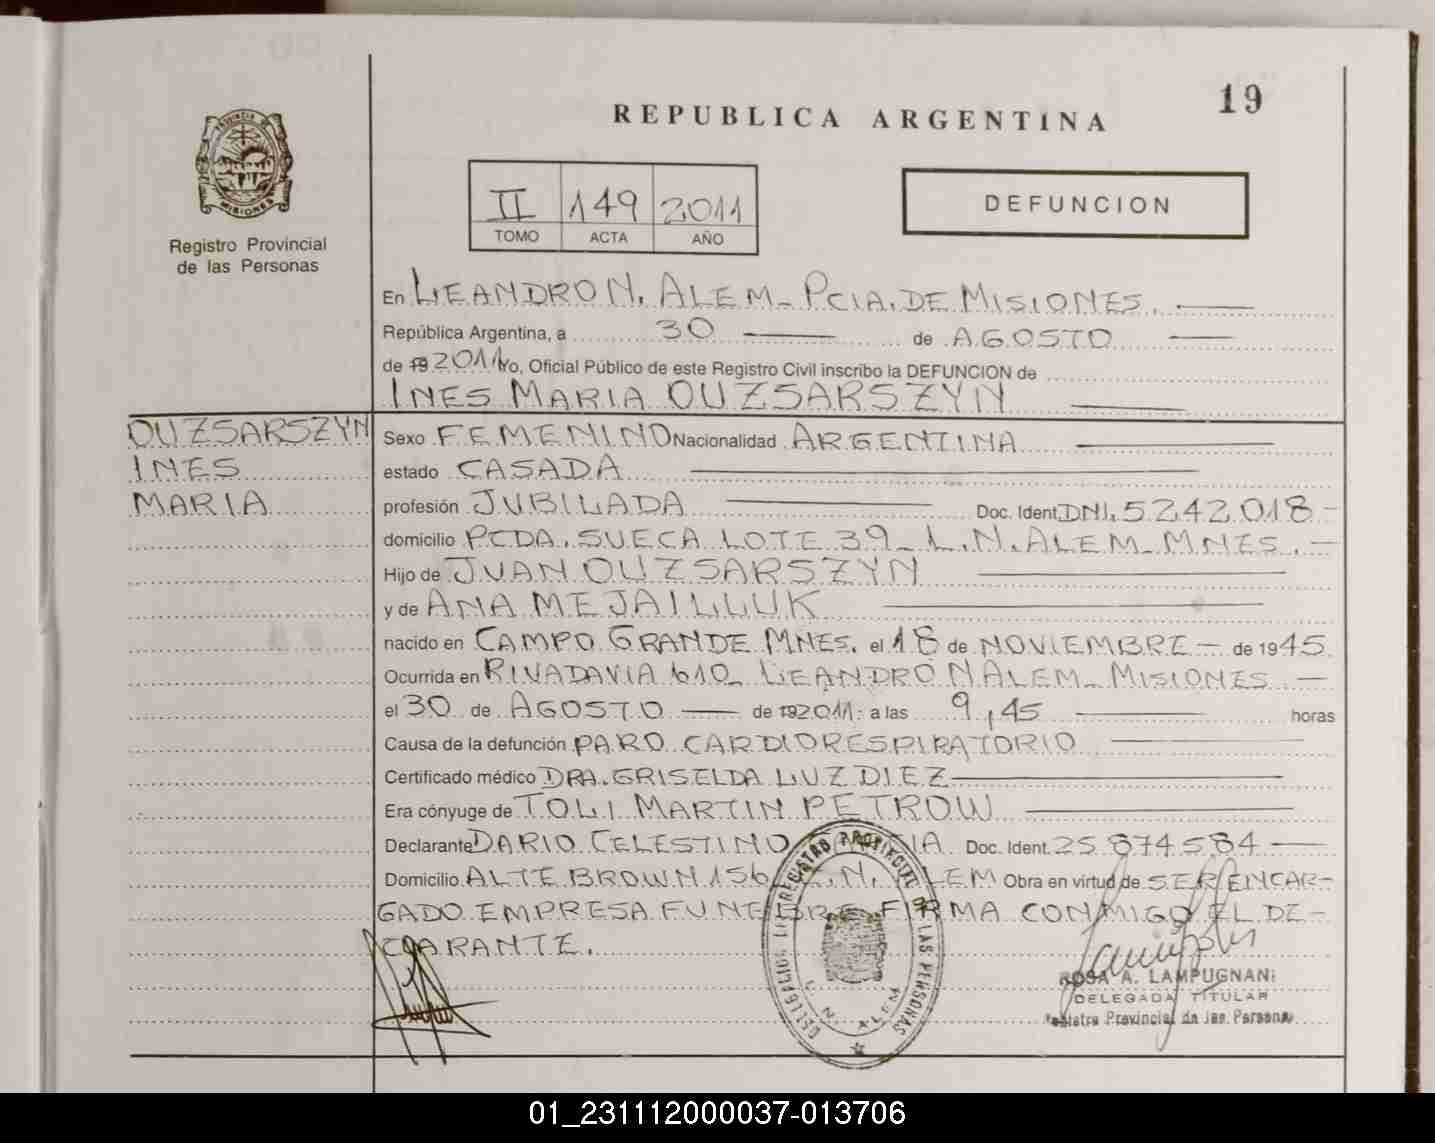 19
REPUBLICA ARGENTINA
PROVINCIA DE
MISIONES
Registro Provincial
de las Personas
II 149 2011
TOMO ACTA AÑO
DEFUNCION
En LEANDRO N. ALEM - PCIA. DE MISIONES.
República Argentina, a 30 de AGOSTO
de 19 2011 Yo, Oficial Público de este Registro Civil inscribo la DEFUNCION de
INES MARIA OUZSARSZYN
OUZSARSZYN
INES
MARIA
Sexo FEMENINO Nacionalidad ARGENTINA
estado CASADA
profesión JUBILADA Doc. Ident. DNI. 5242018-
domicilio PCDA. SUECA LOTE 39 - L.N. ALEM - MNES. -
Hijo de JUAN OUZSARSZYN
y de ANA MEJAILLUK
nacido en CAMPO GRANDE MNES. el 18 de NOVIEMBRE - de 1945
Ocurrida en RIVADAVIA 610 - LEANDRO N ALEM - MISIONES -
el 30 de AGOSTO de 19 2011 a las 9,45 horas
Causa de la defunción PARO CARDIORESPIRATORIO
Certificado médico DRA. GRISELDA LUZ DIEZ
Era cónyuge de TOLI MARTIN PETROW
Declarante DARIO CELESTINO Doc. Ident. 25 874584
Domicilio ALTE BROWN 156 L.N. ALEM Obra en virtud de SER ENCAR-
GADO EMPRESA FUNEBRE FIRMA CONMIGO EL DE-
CLARANTE.
REGISTRO PROVINCIAL DE LAS PERSONAS
L. N. ALEM
ROSA A. LAMPUGNANI
DELEGADA TITULAR
Registro Provincial de las Personas
01_231112000037-013706